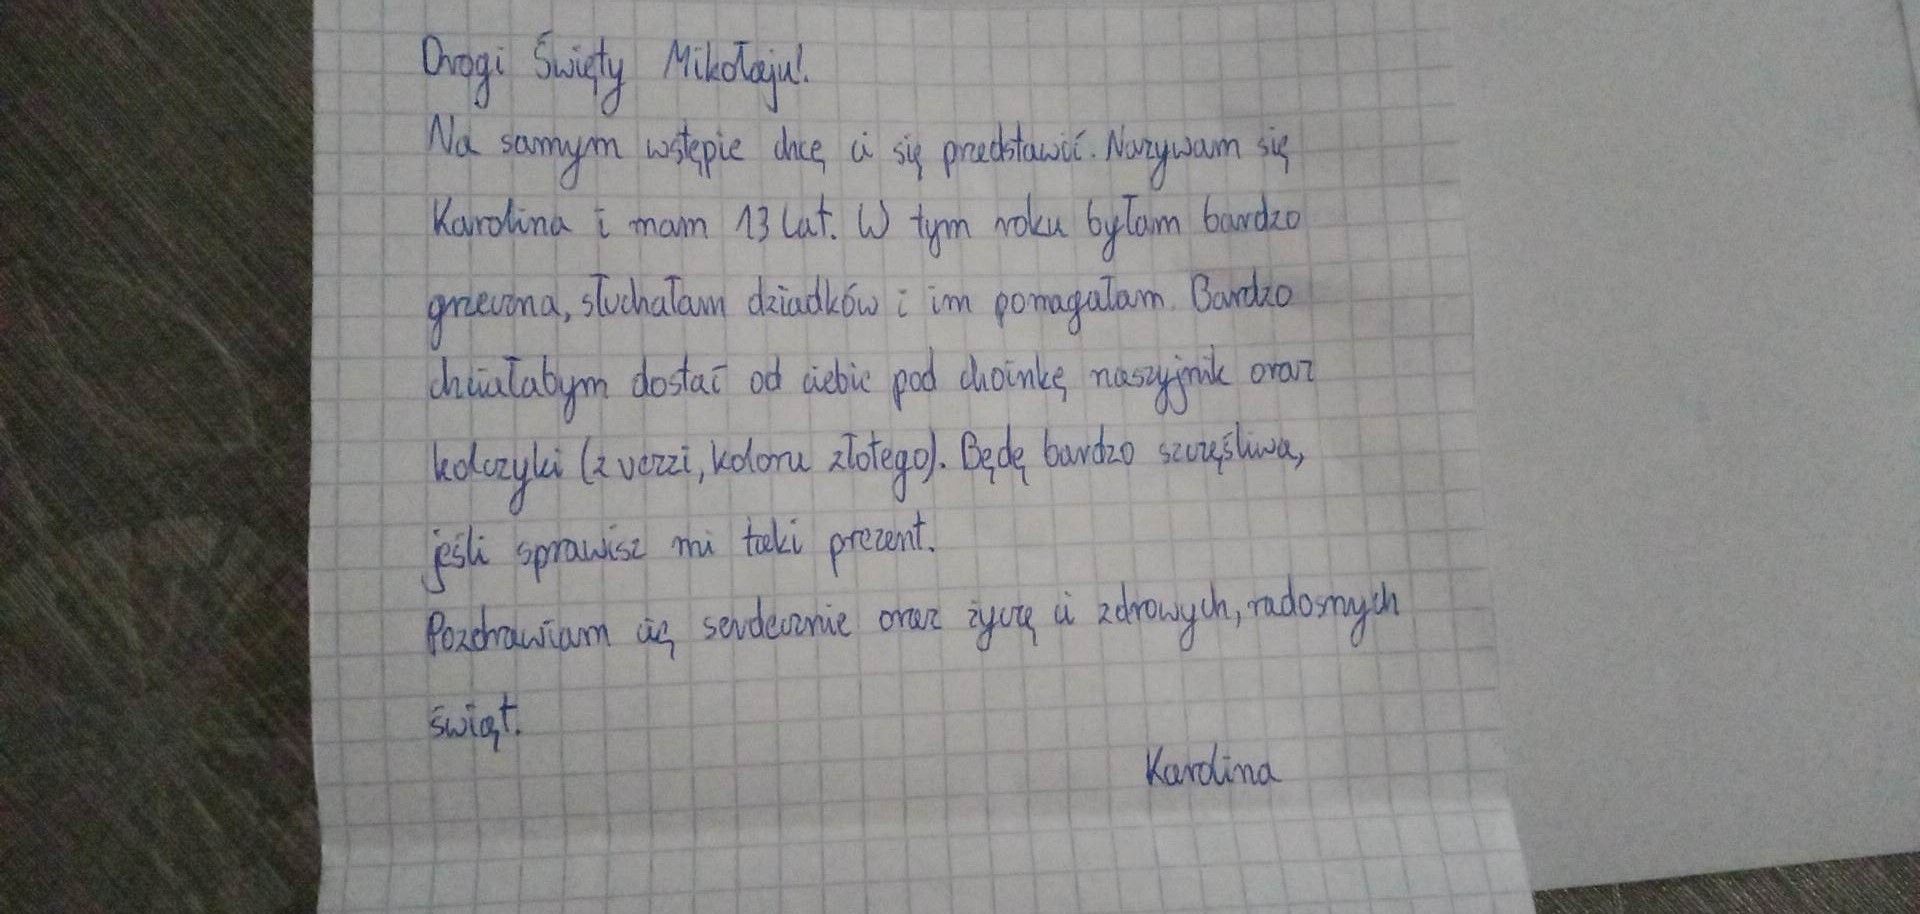 Drogi Święty Mikołaju!
Na samym wstępie chcę ci się przedstawić. Nazywam się
Karolina i mam 13 lat. W tym roku byłam bardzo
grzeczna, słuchałam dziadków i im pomagałam. Bardzo
chciałabym dostać od ciebie pod choinkę naszyjnik oraz
kolczyki (z verzzi, koloru złotego). Będę bardzo szczęśliwa,
jeśli sprawisz mi taki prezent.
Pozdrawiam cię serdecznie oraz życzę ci zdrowych, radosnych
świąt.
Karolina